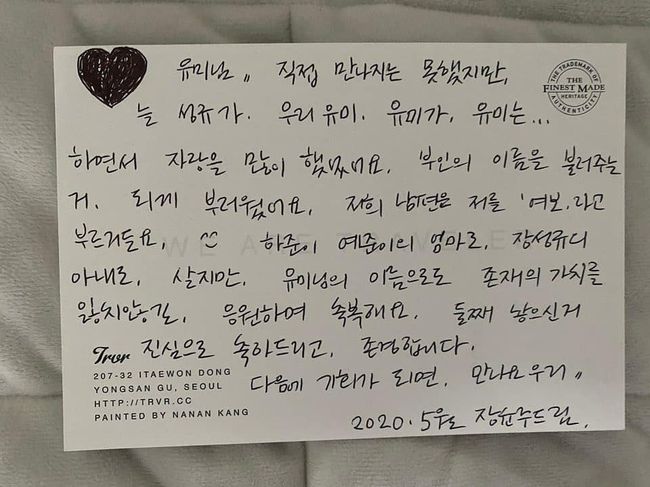 유미님,, 직접 만나지는 못했지만,
THE TRADEMARK OF
THE
FINEST MADE
HERITAGE
AUTHENTICITY
늘 성규가. 우리 유미. 유미가, 유미는...
하면서 자랑을 많이 했었어요. 부인의 이름을 불러주는
거. 되게 부러웠어요. 저희 남편은 저를 '여보.라고
부르거든요,
하준이 예준이의 엄마로, 장성규의
아내로, 살지만. 유미님의 이름으로도 존재의 가치를
잃지않길, 응원하며 축복해요. 둘째 낳으신거
진심으로 축하드리고, 존경합니다.
다음에 기회가 되면, 만나요우리,,
2020. 5월 장윤주드림.
Trvr
207-32 ITAEWON DONG
YONGSAN GU, SEOUL
HTTP://TRVR.CC
PAINTED BY NANAN KANG